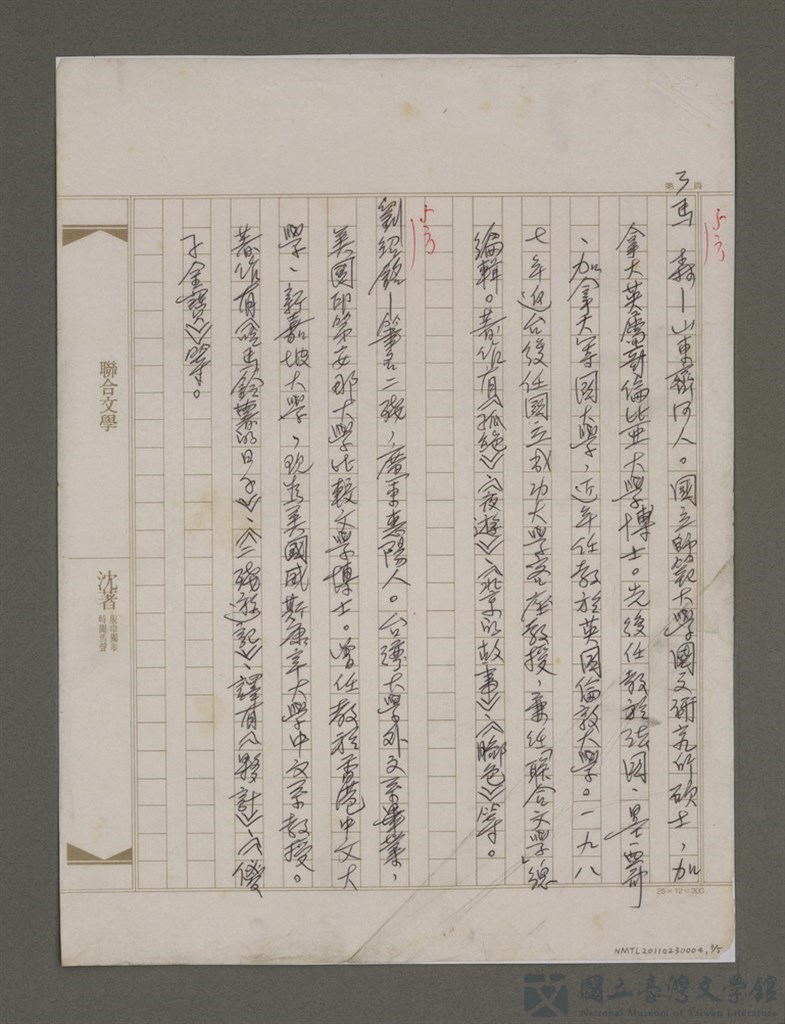 馬 森—山東齊河人。國立師範大學國文研究所碩士，加
拿大英屬哥倫比亞大學博士。先後任教於法國、墨西哥
、加拿大等國大學，近年任教於英國倫敦大學。一九八
七年返台後任國立成功大學客座教授，兼任「聯合文學」總
編輯。著作有《孤絕》《夜遊》、《北京的故事》、《腳色》等。
劉紹銘—筆名二殘，廣東惠陽人。台灣大學外文系畢業，
美國印第安那大學比較文學博士。曾任教於香港中文大
學、新嘉坡大學，現為美國威斯康辛大學中文系教授。
著作有《吃馬鈴薯的日子》、《二殘遊記》、譯有《夥計》、《傻
子金寶》等。
聯合文學
第 頁
25×12=300
NMTL20110230004
國立臺灣文學館
National Museum of Taiwan Literature